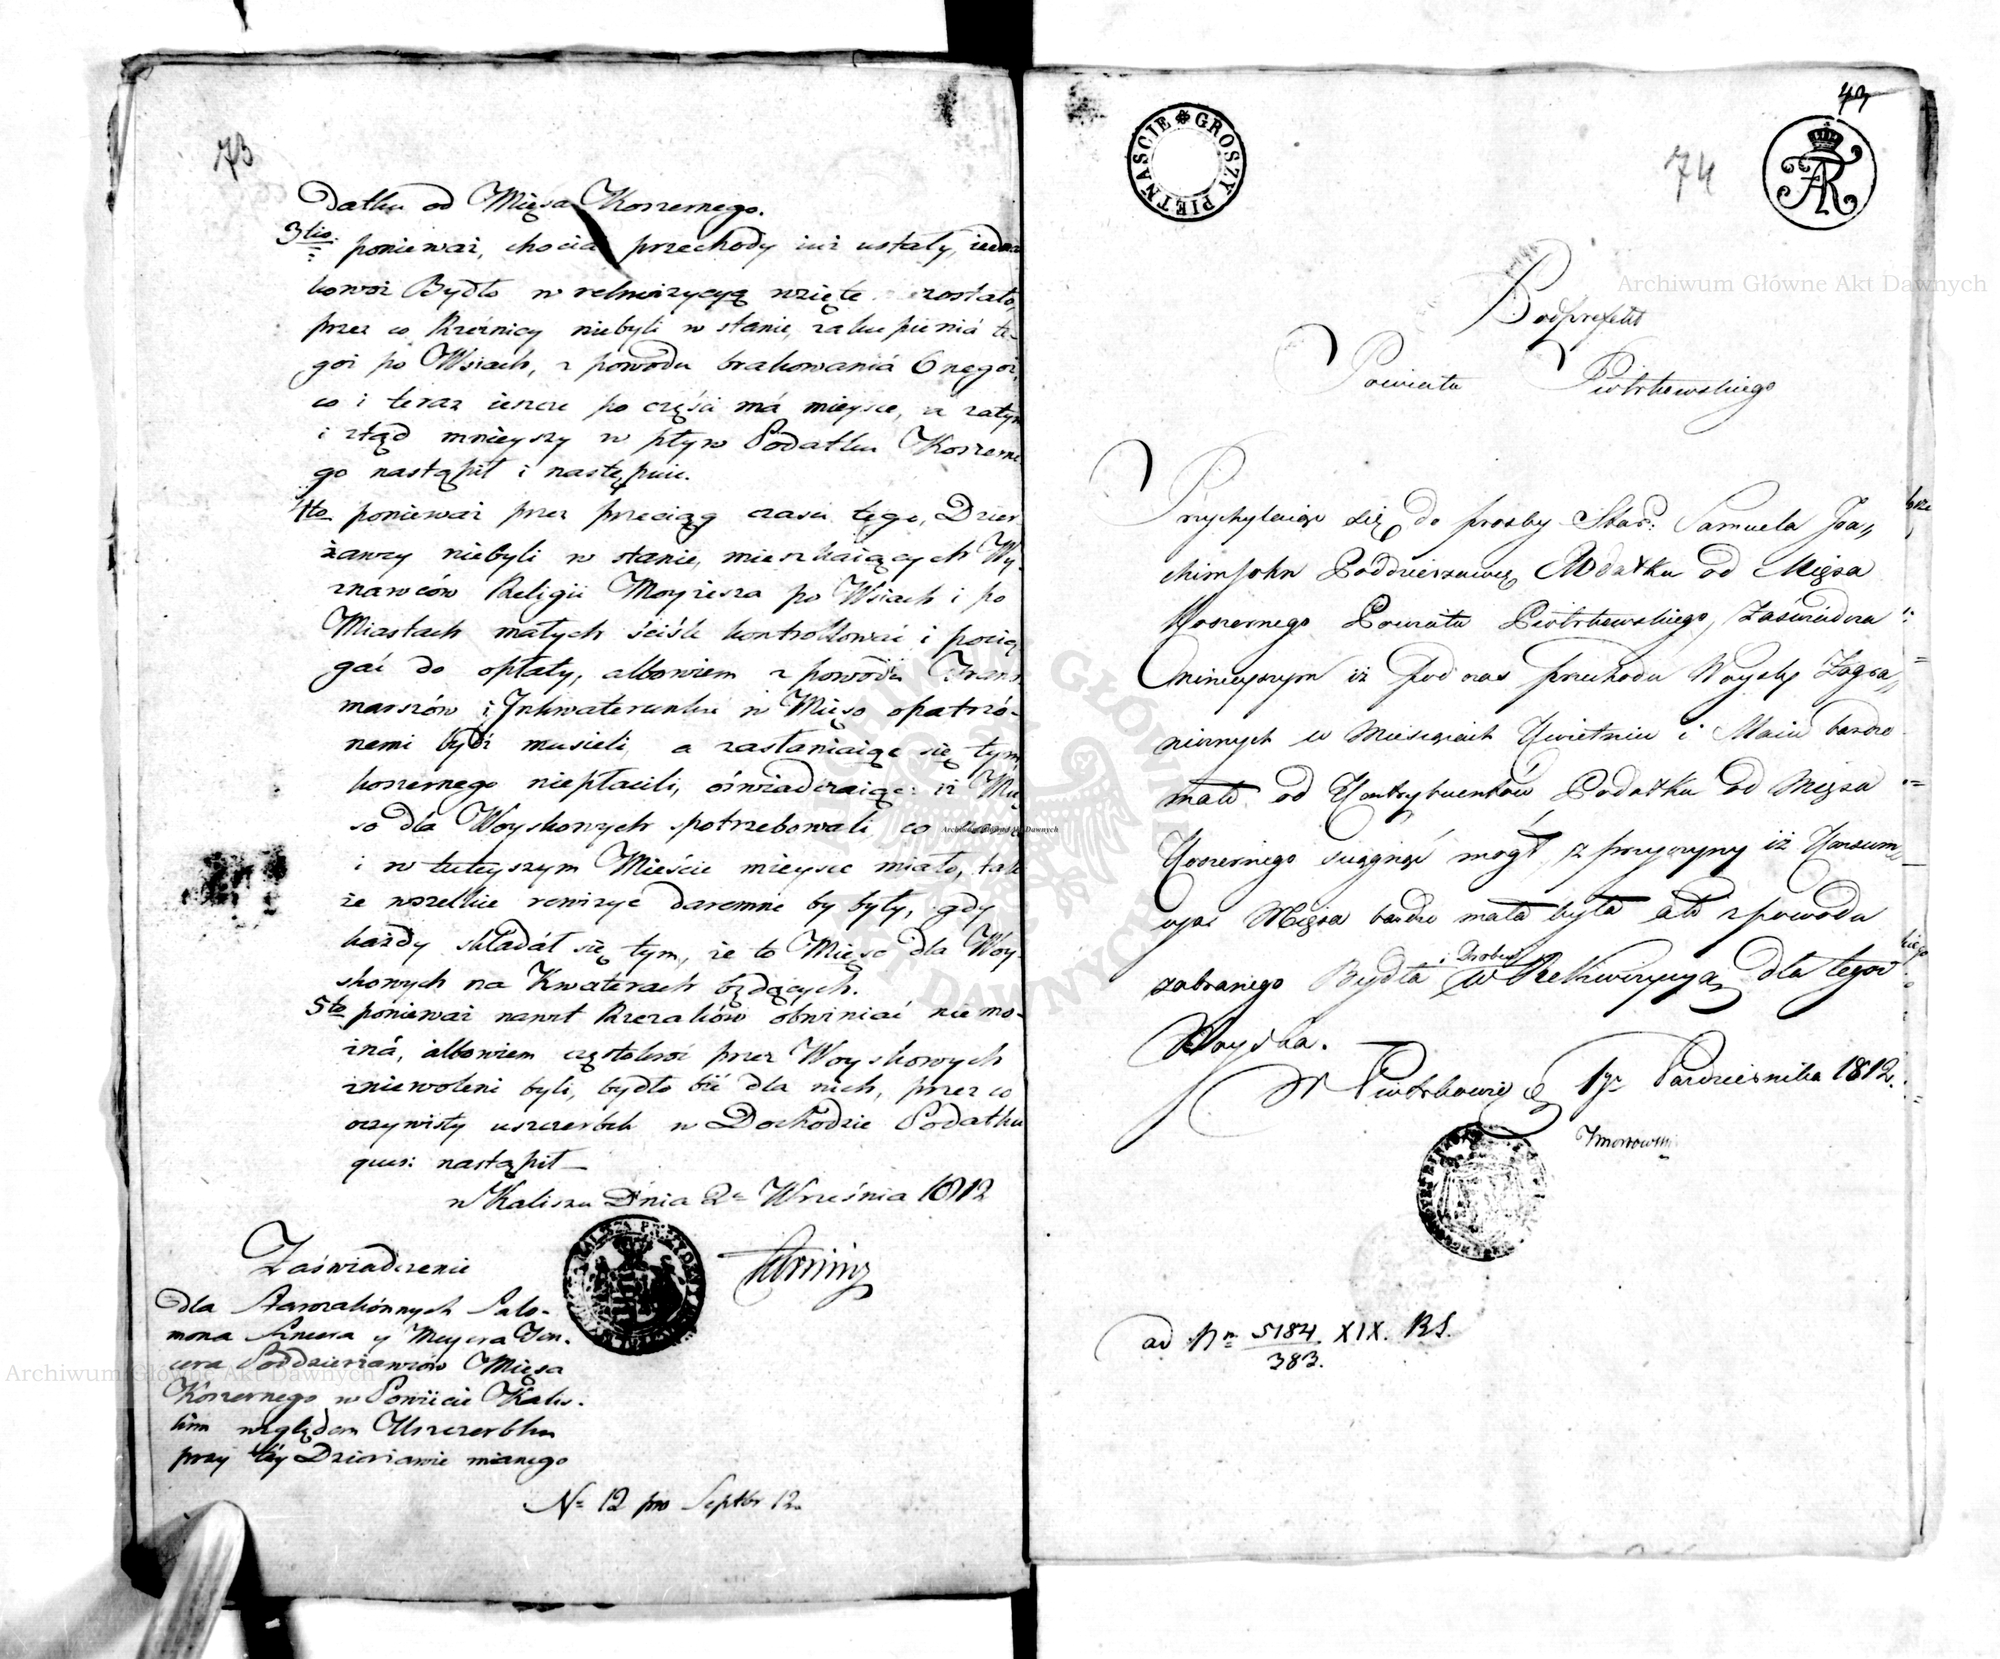 73
datku od Mięsa Koszernego.
3tio. ponieważ, chociaż przechody iuż ustały, iedna
kowoż Bydło w rekwizycyą wzięte zostało,
przez co Rzeźnicy niebyli w stanie, zakupienia te-
goż po Wsiach, z powodu brakowania Onegoż,
co i teraz ieszcze po części má mieysce, a zatym
i ztąd mnieyszy w pływ Podatku Koszerne
go nastąpił i następuie.
4to ponieważ przez przeciąg czasu tego, Dzier
żawcy niebyli w stanie, mieszkaiących Wy-
znawców Religii Moyżesza po Wsiach i po
Miastach małych ściśle kontrollować i pocią
gać do opłaty, albowiem z powodu Trans
marszów i Inkwaterunku w Mięso opatrzo-
nemi bydź musieli, a zasłaniaiąc się tym
koszernego niepłacili, oświadczaiąc: iż Mię
so dla Woyskowych spotrzebowali, co nawet
i w tuteyszym Mieście mieysce miało, tak
że wszelkie rewizye daremne by były, gdy
każdy składáł się tym, że to Mięso dla Woy-
skowych na Kwaterach będących.
5to ponieważ nawet Rzezaków obwiniać niemo-
żná, albowiem częstokroć przez Woyskowych
zniewoleni byli, bydło bić dla nich, przez co
oczywisty uszczerbek w Dochodzie Podatku
ques: nastąpił
w Kaliszu Dnia 2o Września 1812
Zaświadczenie
dla Starozakonnych Salo-
mona
y Meyera
Poddzierzawców Mięsa
Koszernego w Powiecie Kalis-
kim względem Uszczerbku
przy téy Dzierżawie mianego
No 12 pro Septbr 12.
GROSZY PIĘTNAŚCIE
74
Podprefekt
Powiatu Piotrkowskiego
Przychylaiąc się do prosby Star: Samuela Joa„
chimsohn Poddzierzawcę Podatku od Mięsa
Koszernego Powiatu Piotrkowskiego, Zaświadcza
ninieyszym iż Podczas przechodu Woysk Zagra„
nicznych w Miesiącach Kwietniu i Maiu bardzo
mało od Kontrybuentów Podatku od Mięsa
Koszernego ściągnąć mógł, z przyczyny iż Konsum„
cya Mięsa bardzo mała była ato z powodu
zabranego Bydła i Drobiu w Rekwizycyą dla tegoż
Woyska.
w Piotrkowie d 17o Pazdziernika 1812.
ad Nm 5184/383. XIX. RS.
Archiwum Główne Akt Dawnych
Archiwum Główne Akt Dawnych
Archiwum Główne Akt Dawnych
ARCHIWUM GŁÓWNE AKT DAWNYCH